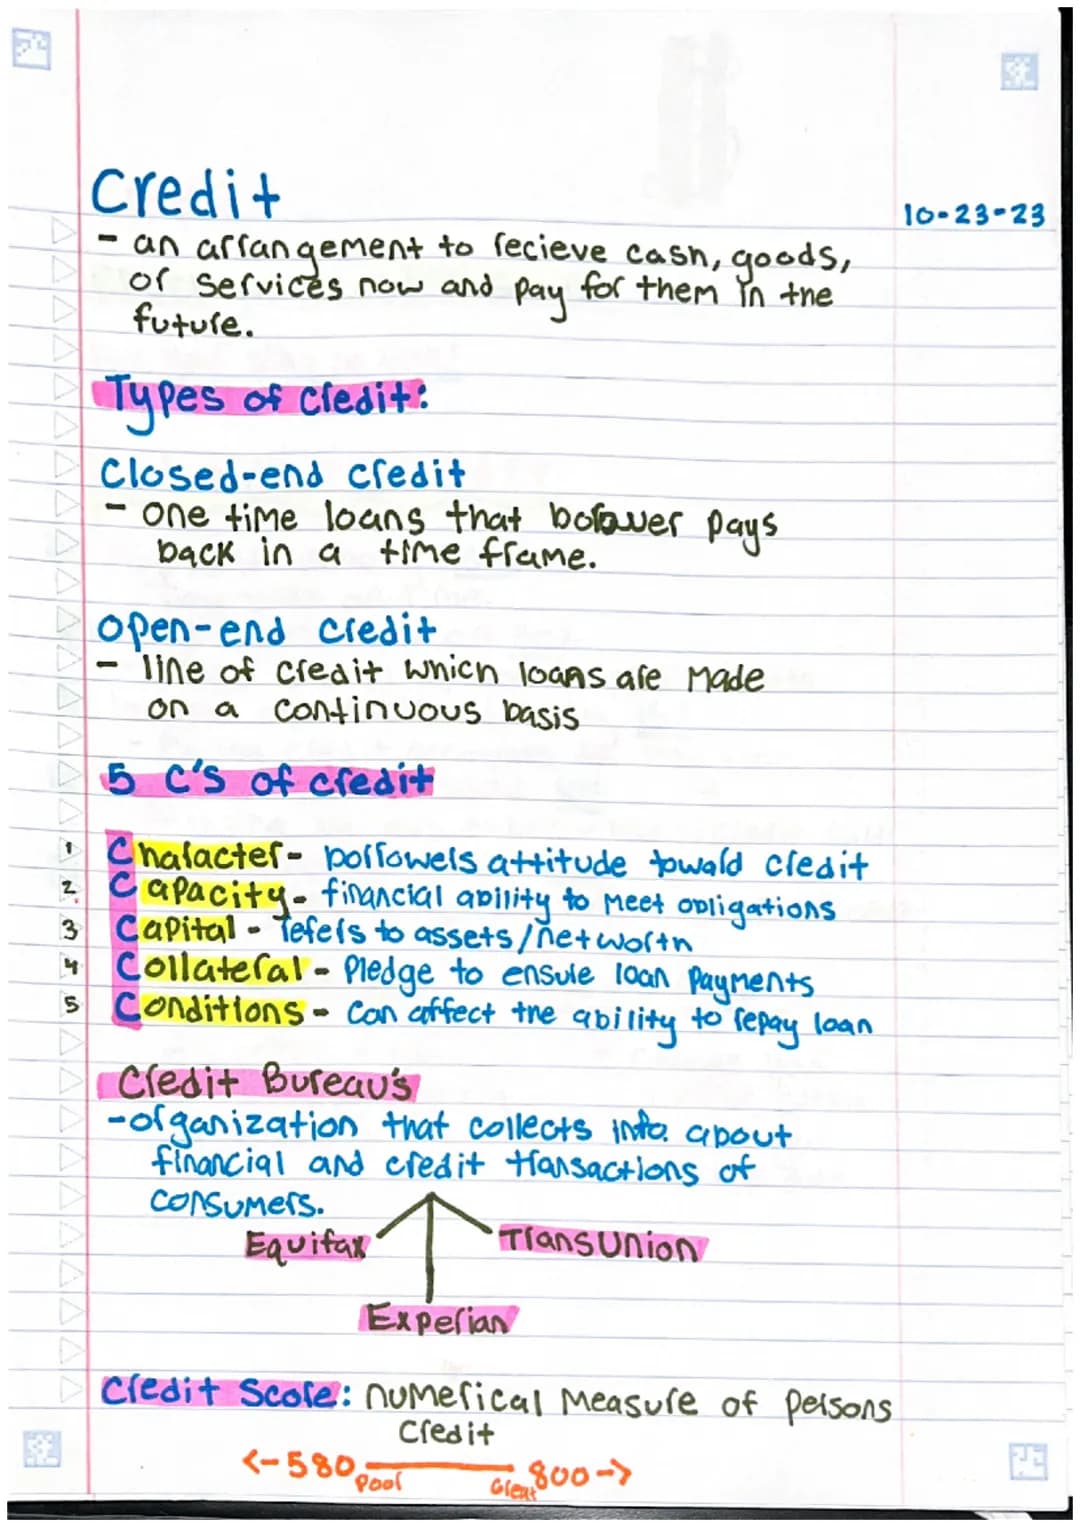 Credit
10-23-23
- an arrangement to recieve cash, goods,
or services now and pay for them in the
future.
Types of credit:
Closed-end credit
- one time loans that borower pays
back in a time frame.
Open-end credit
- line of credit which loans are made
on a continuous basis
5 C's of credit
1 Character- borrowers attitude toward credit
2 Capacity- financial ability to meet obligations
3 Capital - refers to assets/networth
4 Collateral - Pledge to ensure loan payments
5 Conditions - Can affect the ability to repay loan
Credit Bureau's
-organization that collects info. about
financial and credit transactions of
consumers.
Equifax TransUnion
Experian
Credit Score: numerical measure of persons
Credit
<-580 800->
Poor Great